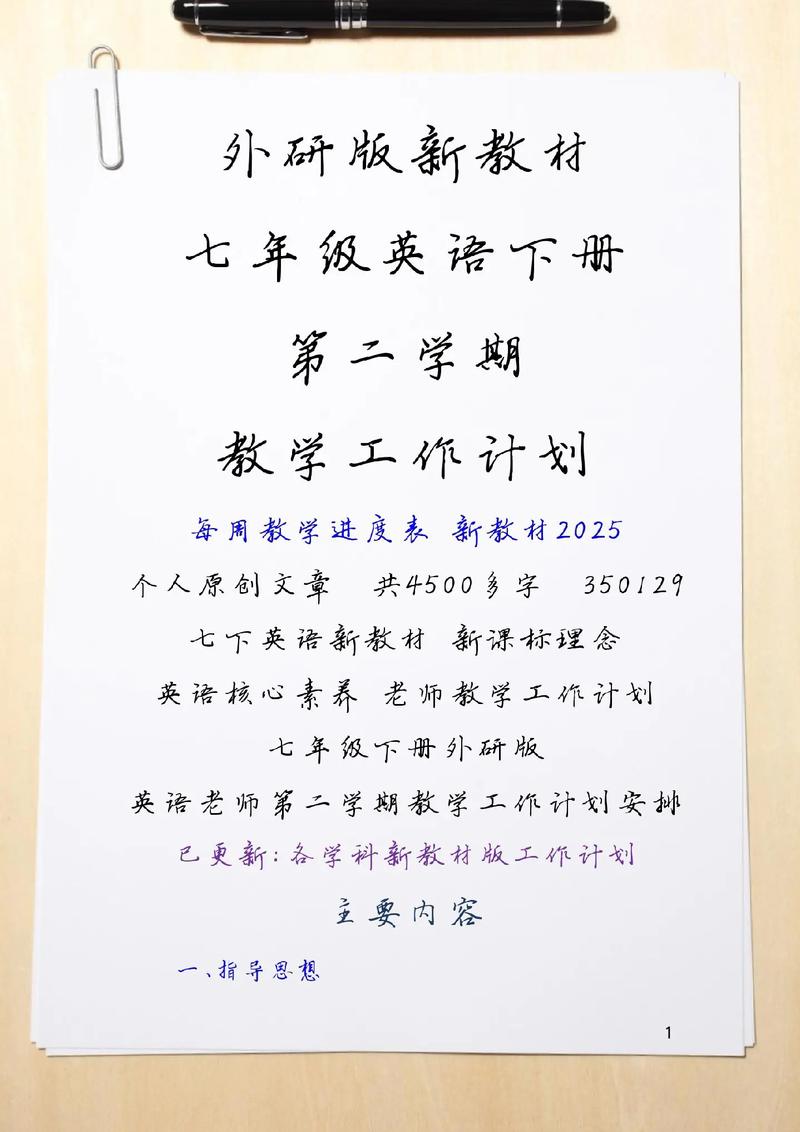 外研版新教材
七年级英语下册
第二学期
教学工作计划
每周教学进度表 新教材2025
个人原创文章 共4500多字 350129
七下英语新教材 新课标理念
英语核心素养 老师教学工作计划
七年级下册外研版
英语老师第二学期教学工作计划安排
已更新:各学科新教材版工作计划
主要内容
一、指导思想
1